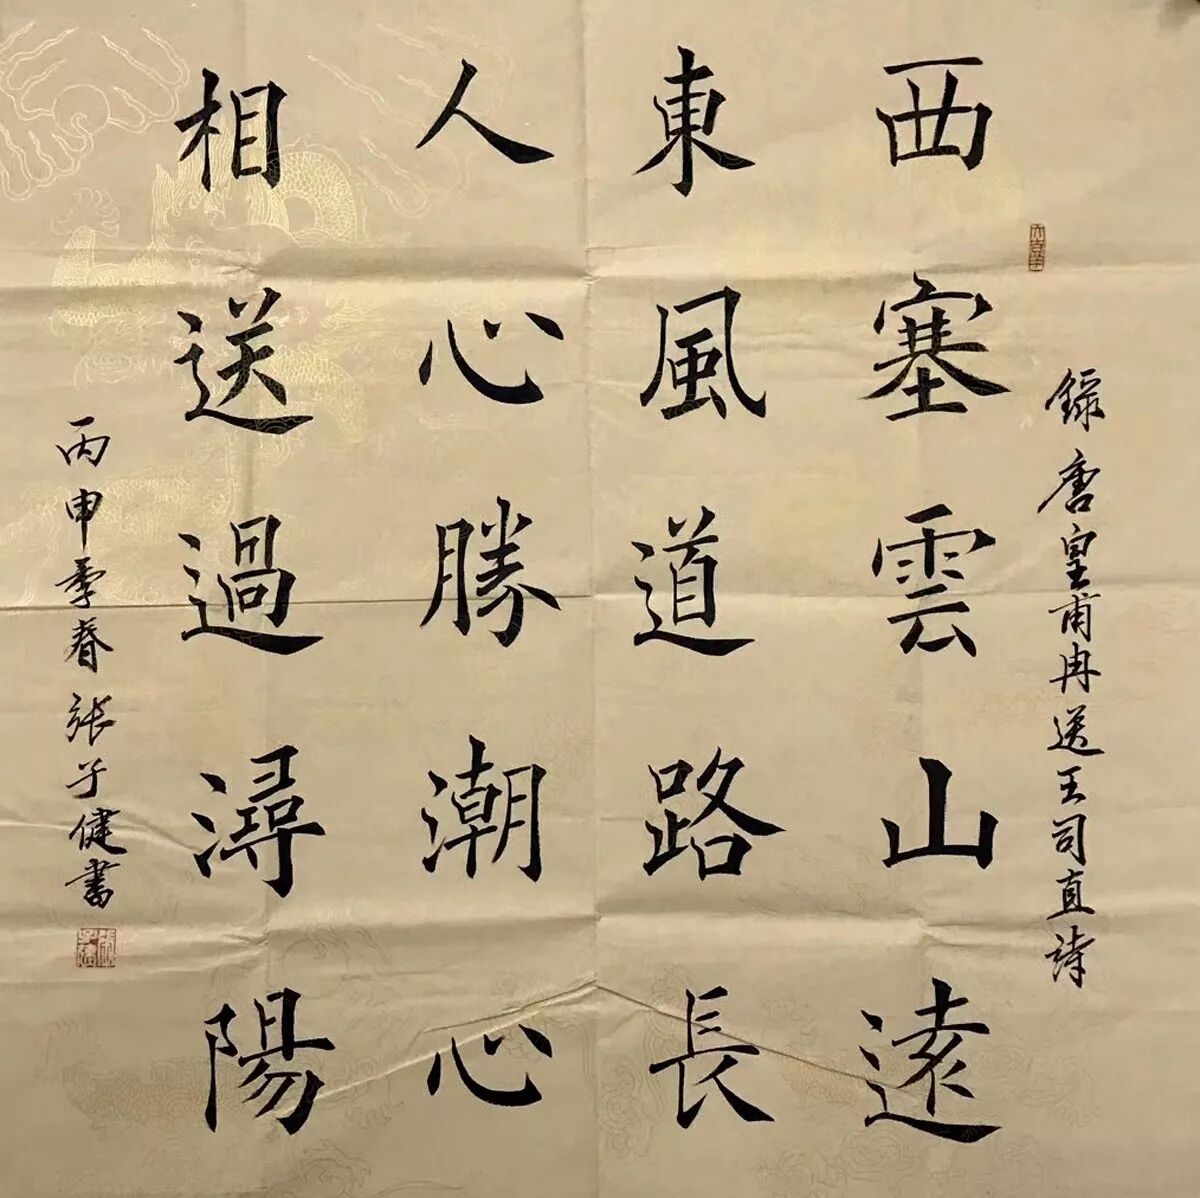 錄唐皇甫冉送王司直詩
西塞雲山遠
東風道路長
人心勝潮心
相送過潯陽
丙申季春張子健書